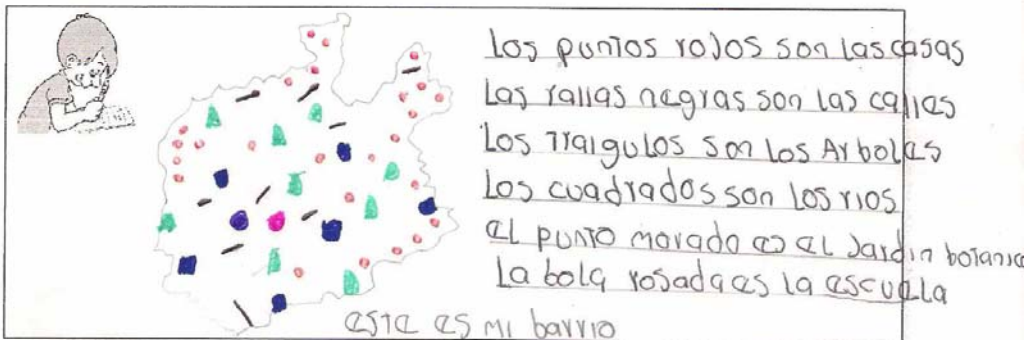 Los puntos rojos son las casas
Las rallas negras son las calles
Los Traigulos son los Arboles
Los cuadrados son los rios
el punto morado es el Jardin botanico
La bola rosada es la escuela
este es mi barrio